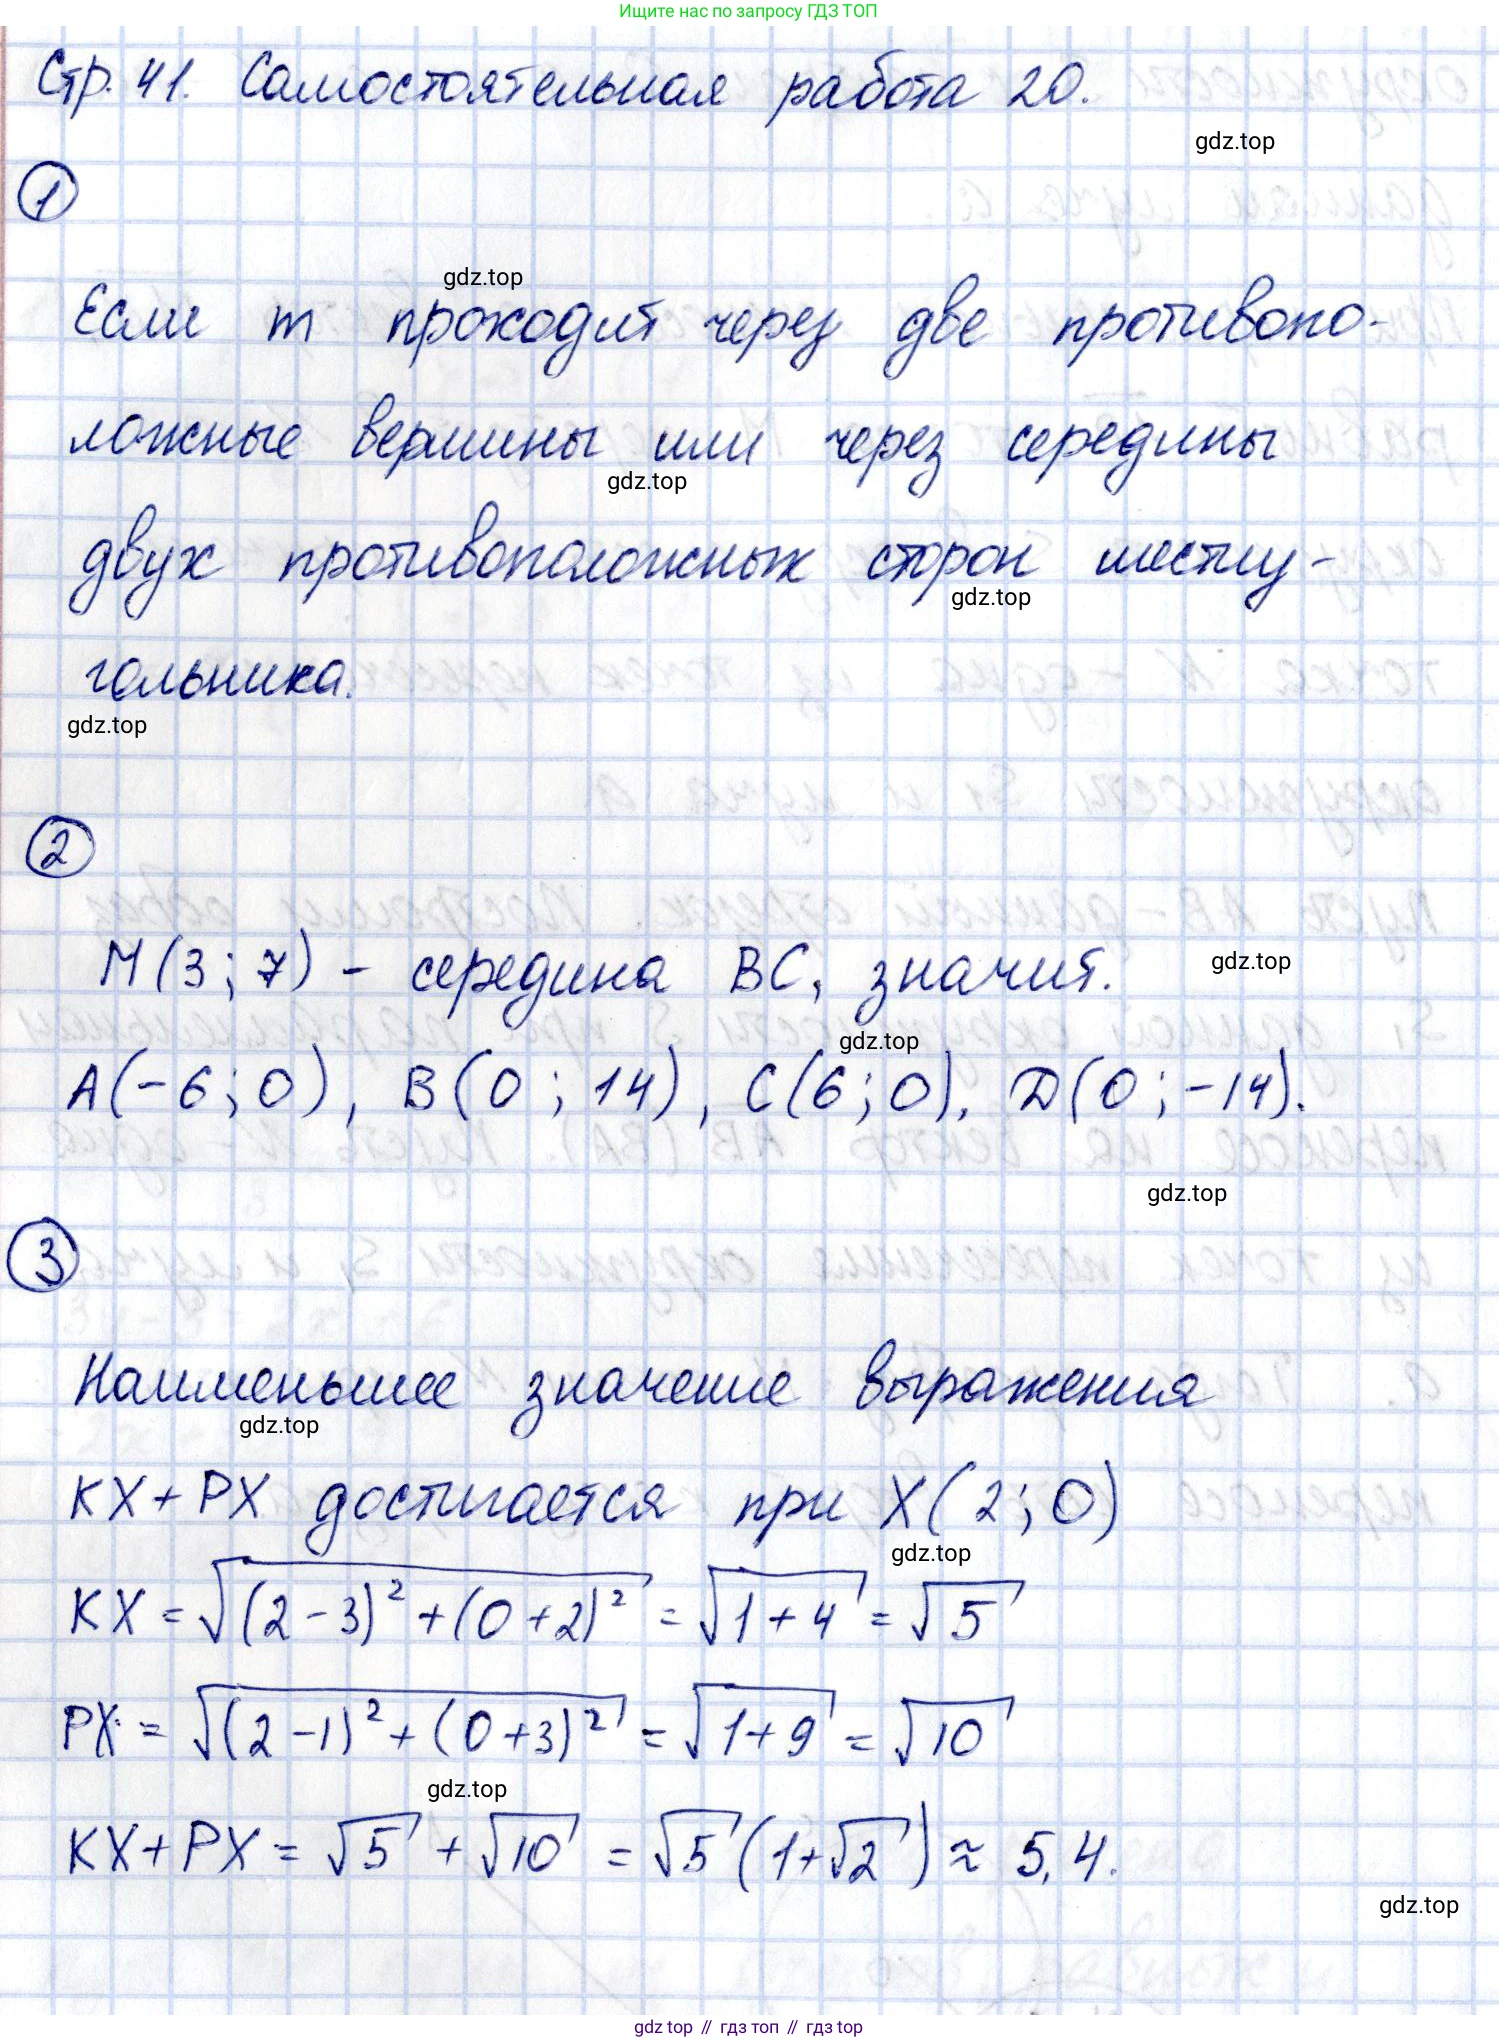 Ищите нас по запросу ГДЗ ТОП
Стр. 41. Самостоятельная работа 20.
gdz.top
1
gdz.top
Если m проходит через две противопо-
ложные вершины или через середины
gdz.top
двух противоположных сторон шестиу-
gdz.top
гольника.
gdz.top
2
M(3; 7) - середина BC, значит.
gdz.top
gdz.top
A(-6; 0), B(0; 14), C(6; 0), D(0; -14).
gdz.top
3
Наименьшее значение выражения
gdz.top
KX + PX достигается при X(2; 0)
gdz.top
KX = √((2-3)² + (0+2)²) = √(1+4) = √5
PX = √((2-1)² + (0+3)²) = √(1+9) = √10
gdz.top
KX + PX = √5 + √10 = √5(1+√2) ≈ 5,4.
gdz.top
gdz top // гдз топ // гдз top